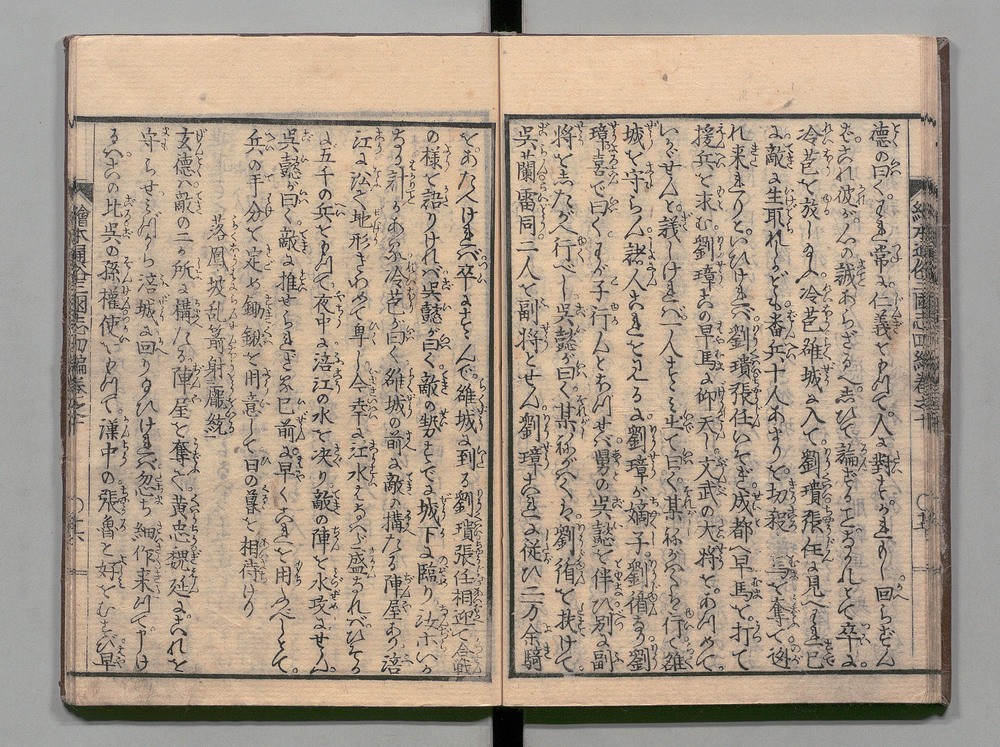 徳の曰くわれ常に仁義をもつて人に對すかれもし回らずん
ばこれ彼が心の誠あらざる也しひて論ずることなかれとて卒に
冷苞を放しめ玉ふ冷苞雒城に入て劉璝張任に見へわれ已
に敵に生取れしかども番兵十人あまりを切殺し馬を奪て迯
れ来れりといひければ劉璝張任いそぎ成都へ早馬を打て
援兵を求む劉璋この早馬に仰天し文武の大将をあつめて
いかゞせんと議しければ一人すゝみ出て曰く某ねがはくは行て雒
城を守らん諸人これを見るに劉璋が嫡子劉循なり劉
璋喜で曰くわが子行んとあつては舅の呉懿を伴ひ別に副
将をしたがへ行べし呉懿が曰く某ねがはくは劉循を扶けて
呉蘭雷同二人を副将とせん劉璋これに従ひ二万余騎
をあたへければ卒にすゝんで雒城に到る劉璝張任相迎て合戦
の様を語りければ呉懿が曰く敵の勢すでに城下に臨り汝ホいか
なる計かある冷苞が曰く雒城の前に敵の構たる陣屋あり涪
江に近く地形きわめて卑し今幸に江水はなはだ盛なれバひそか
に五千の兵をもつて夜中に涪江の水を决り敵の陣を水攻にせん
呉懿が曰く敵に推せられざる已前に早くこれを用ふべしとて
兵の手分を定め鋤鍬を用意して日の暮を相待けり
落鳳坡乱箭射龐統
玄徳ハ敵の二ヶ所に構たる陣屋を奪て黄忠魏延にこれを
守らせみづから涪城に回り玉ひければ忽ち細作来つて申しけ
るはこの比呉の孫權使をもつて漢中の張魯と好をむすび早
繪本通俗三國志四編巻之十
繪本通俗三國志四編巻之十